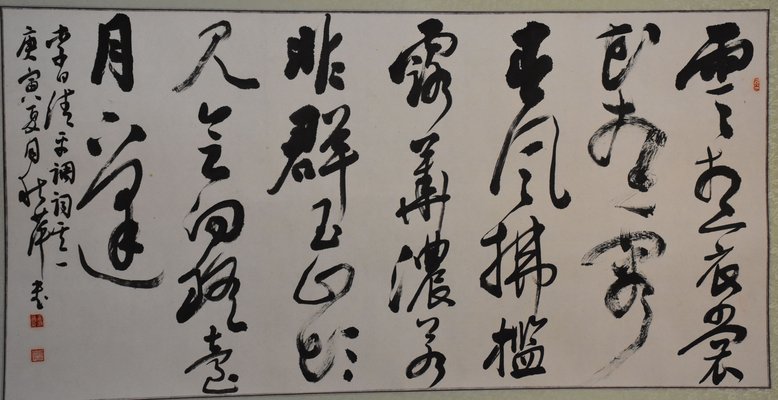 雲想衣裳
花想容
春風拂檻
露華濃若
非群玉山頭
見會向瑤臺
月下逢
李白清平調詞其一
庚寅夏月 書